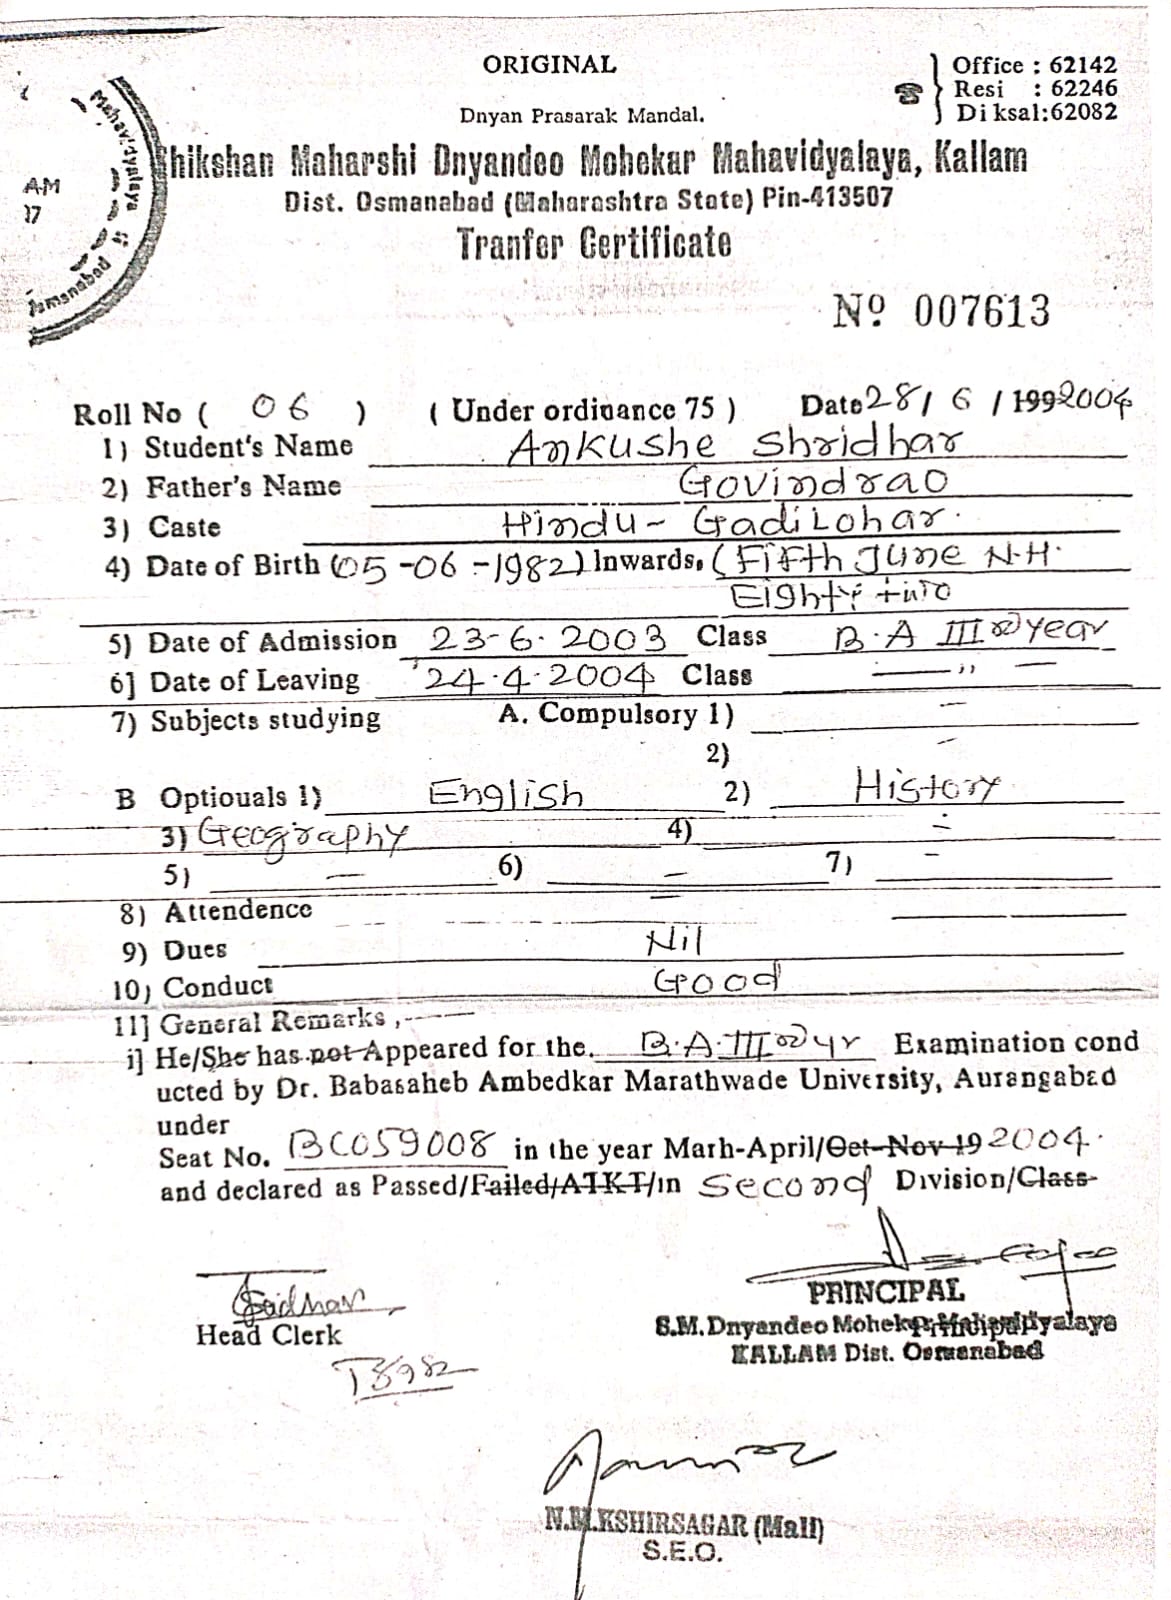 ORIGINAL
Office : 62142
Resi : 62246
Diksal:62082
Dnyan Prasarak Mandal.
Shikshan Maharshi Dnyandeo Mohekar Mahavidyalaya, Kallam
Dist. Osmanabad (Maharashtra State) Pin-413507
Tranfer Certificate
Mahavidyalaya
Osmanabad
Nº 007613
Roll No ( 06 ) ( Under ordinance 75 ) Date 28/ 6 / 1992004
1) Student's Name Ankushe Shridhar
2) Father's Name Govindrao
3) Caste Hindu - Gadi Lohar.
4) Date of Birth (05-06-1982) Inwards. (Fifth June N.H.
Eighty two
5) Date of Admission 23-6.2003 Class B.A III year
6] Date of Leaving 24.4.2004 Class —"—
7) Subjects studying A. Compulsory 1) —
2) —
B Optiouals 1) English 2) History
3) Geography 4) —
5) — 6) — 7) —
8) Attendence
9) Dues Nil
10) Conduct Good
11] General Remarks ,-
i] He/She has not Appeared for the. B.A.III yr Examination cond
ucted by Dr. Babasaheb Ambedkar Marathwade University, Aurangabad
under
Seat No. BC059008 in the year Marh-April/Oct-Nov 19 2004.
and declared as Passed/Failed/ATKT/in Second Division/Class
Head Clerk
PRINCIPAL
S.M. Dnyandeo Mohekar Mahavidyalaya
Principal
KALLAM Dist. Osmanabad
N.M.KSHIRSAGAR (Mali)
S.E.O.